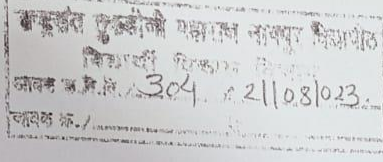 राष्ट्रसंत तुकडोजी महाराज नागपूर विद्यापीठ
विद्यार्थी विकास विभाग
जावक क्र. वि. वि. 304 21/08/023.
आवक क्र./